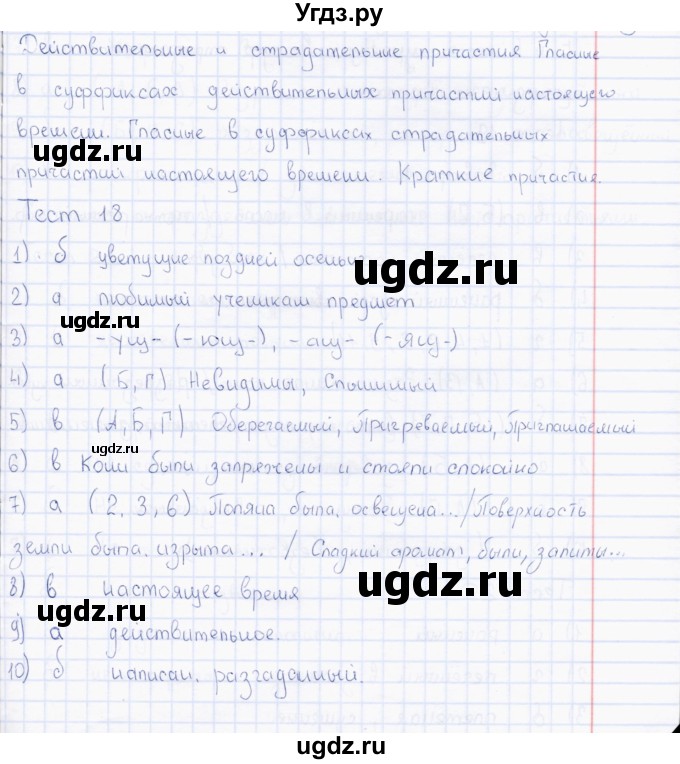 Угдз.ру
Действительные и страдательные причастия Гласные
в суффиксах действительных причастий настоящего
времени. Гласные в суффиксах страдательных
ugdz.ru
причастий настоящего времени. Краткие причастия.
Тест 18
ugdz.ru
1). б цветущие поздней осенью
ugdz.ru
2) а любимый ученикам предмет
ugdz.ru
3) а -ущ- (-ющ-), -ащ- (-ящ-)
4) а (Б, Г) Невидимы, Слышимый
5) в (А, Б, Г) Оберегаемый, Пригреваемый, Приглашаемый
ugdz.ru
6) в Кони были запряжены и стояли спокойно
7) а (2, 3, 6) Поляна была. освещена... /Поверхность
земли была. изрыта... / Сладкий аромат, были, залиты...
ugdz.ru
8) в настоящее время
ugdz.ru
9) а действительное.
10) б написан. разгаданный.
ugdz.ru
ugdz.ru